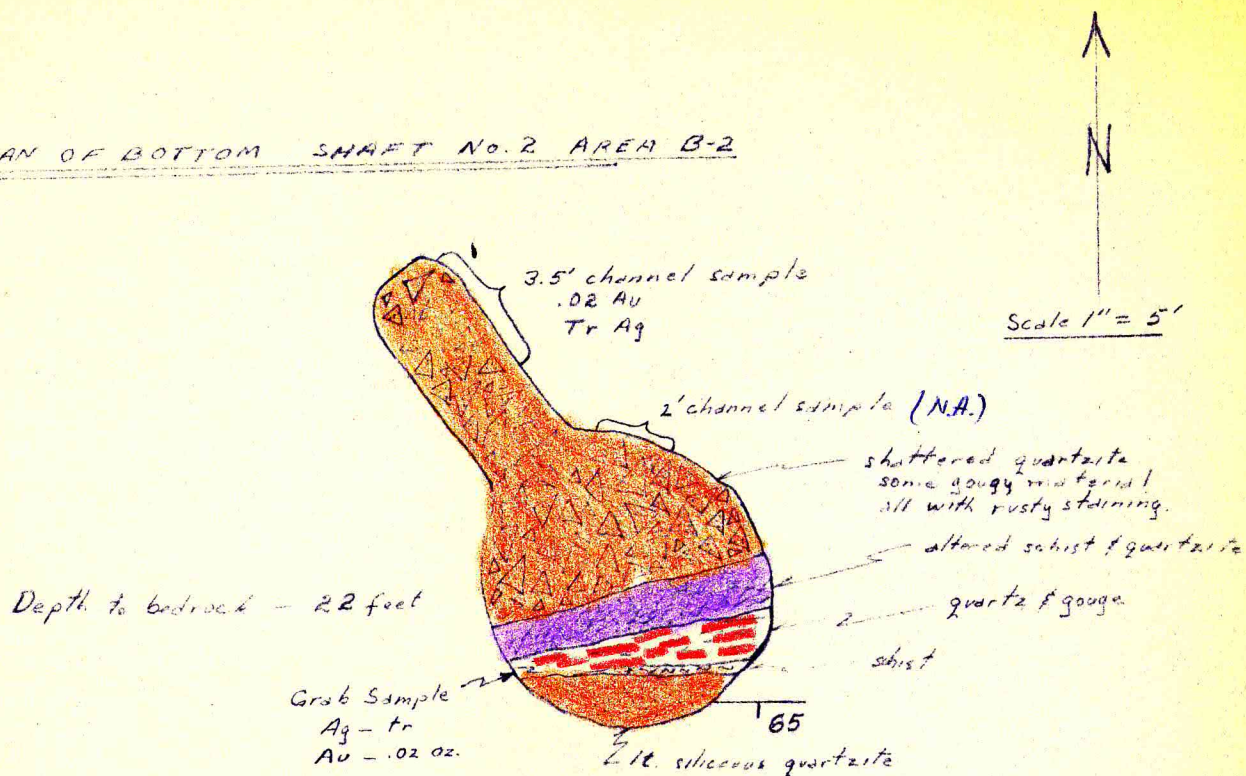 AN OF BOTTOM SHAFT No. 2 AREA B-2
N
Scale 1" = 5'
3.5' channel sample
.02 Au
Tr Ag
2' channel sample (N.A.)
shattered quartzite
some gougy material
all with rusty staining.
altered schist & quartzite
Depth to bedrock - 22 feet
quartz & gouge
schist
Grab Sample
Ag - tr
Au - .02 oz.
65
lt. siliceous quartzite